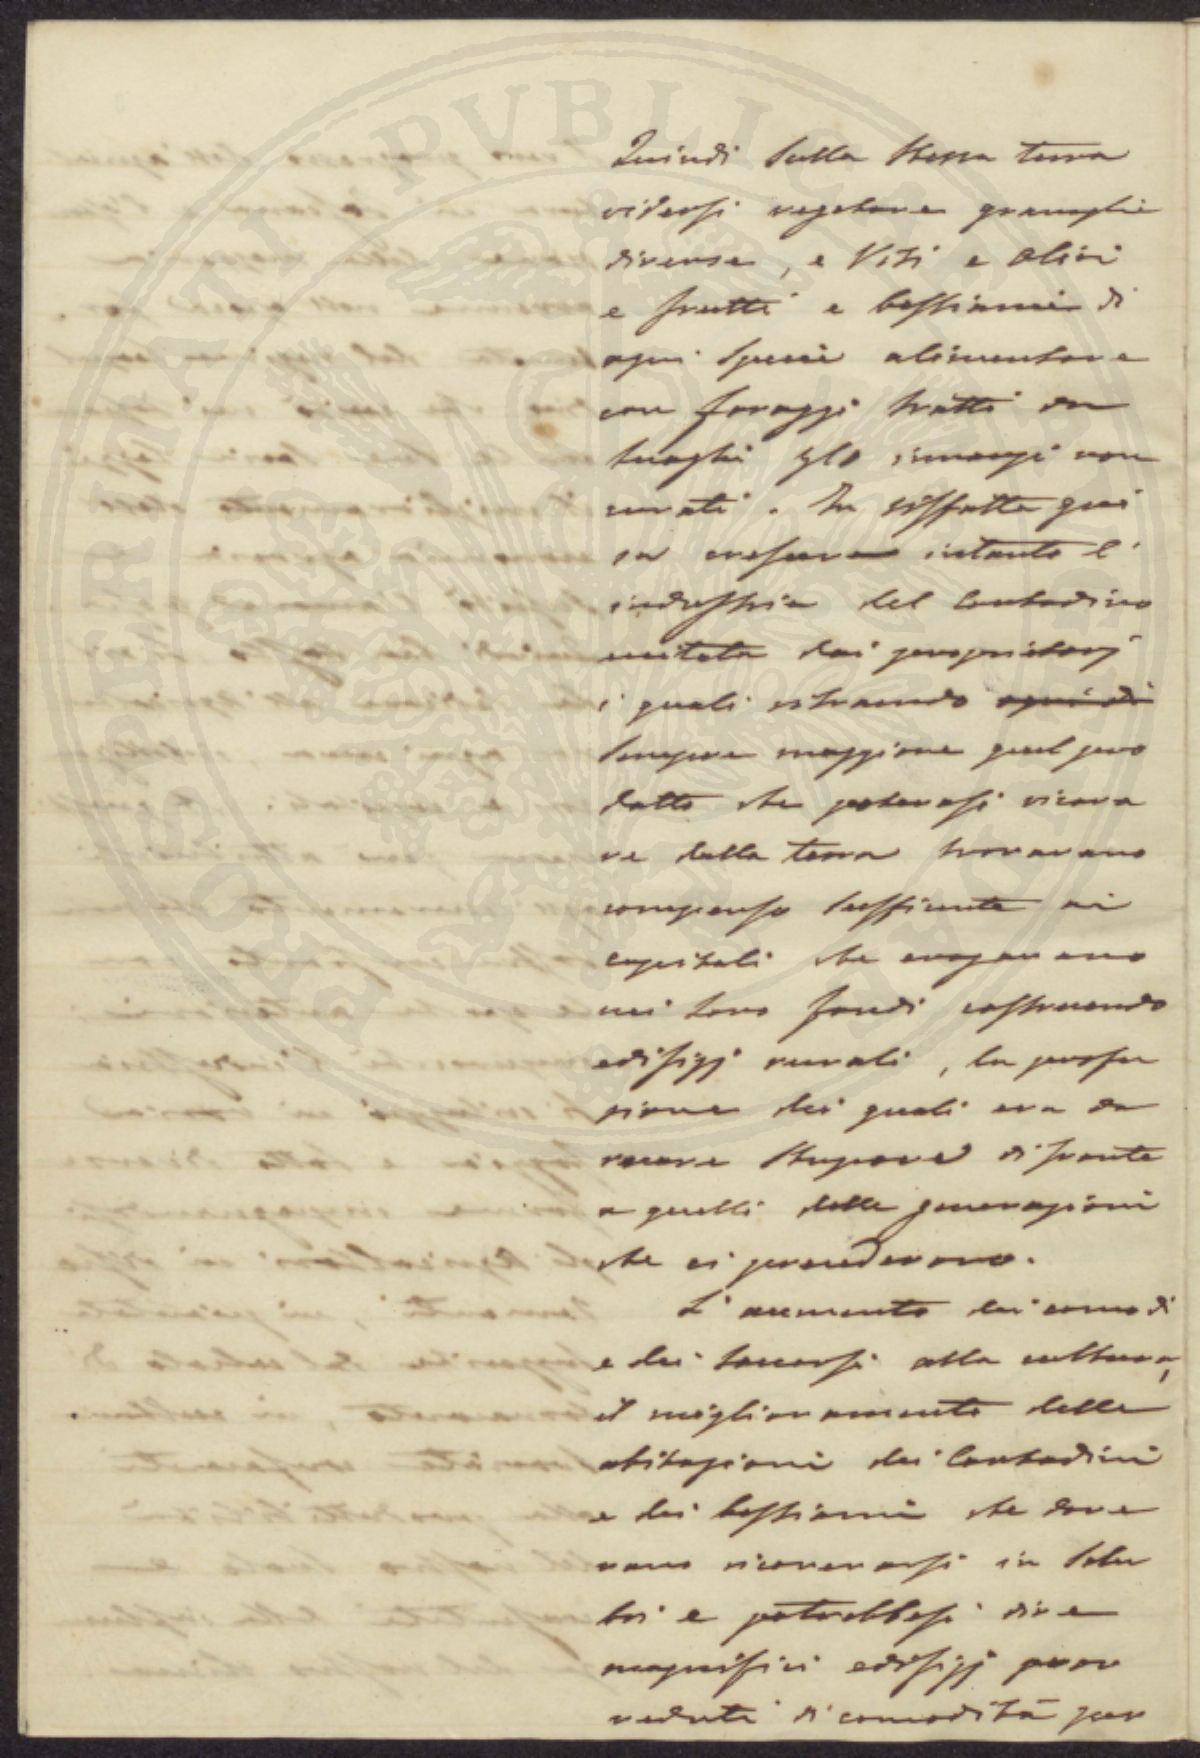 Quindi sulla stessa terra
vidersi vegetare granaglie
diverse, e Viti e Olivi
e frutti e bestiami di
ogni specie alimentare
con foraggi tratti da
luoghi gli innanzi non
curati. In siffatta gui
sa cresceva intanto l'
industria del Contadino
incitata dai proprietarj
i quali estraendo ogni dì
sempre maggiore quel pro
dotto che potevasi ricava
re dalla terra trovavano
compenso sufficiente ai
capitali che erogavano
nei loro fondi costruendo
edifizj rurali, la profu
sione dei quali era da
recare stupore di fronte
a quelli delle generazioni
che ci precederono.
L'aumento dei comodi
e dei soccorsi alla cultura,
il miglioramento delle
abitazioni dei Contadini
e dei bestiami che dove
vano ricoverarsi in salu
bri e potrebbesi dire
magnifici edifizj prov
veduti di comodità per
PROSPERITATI PVBLICAE